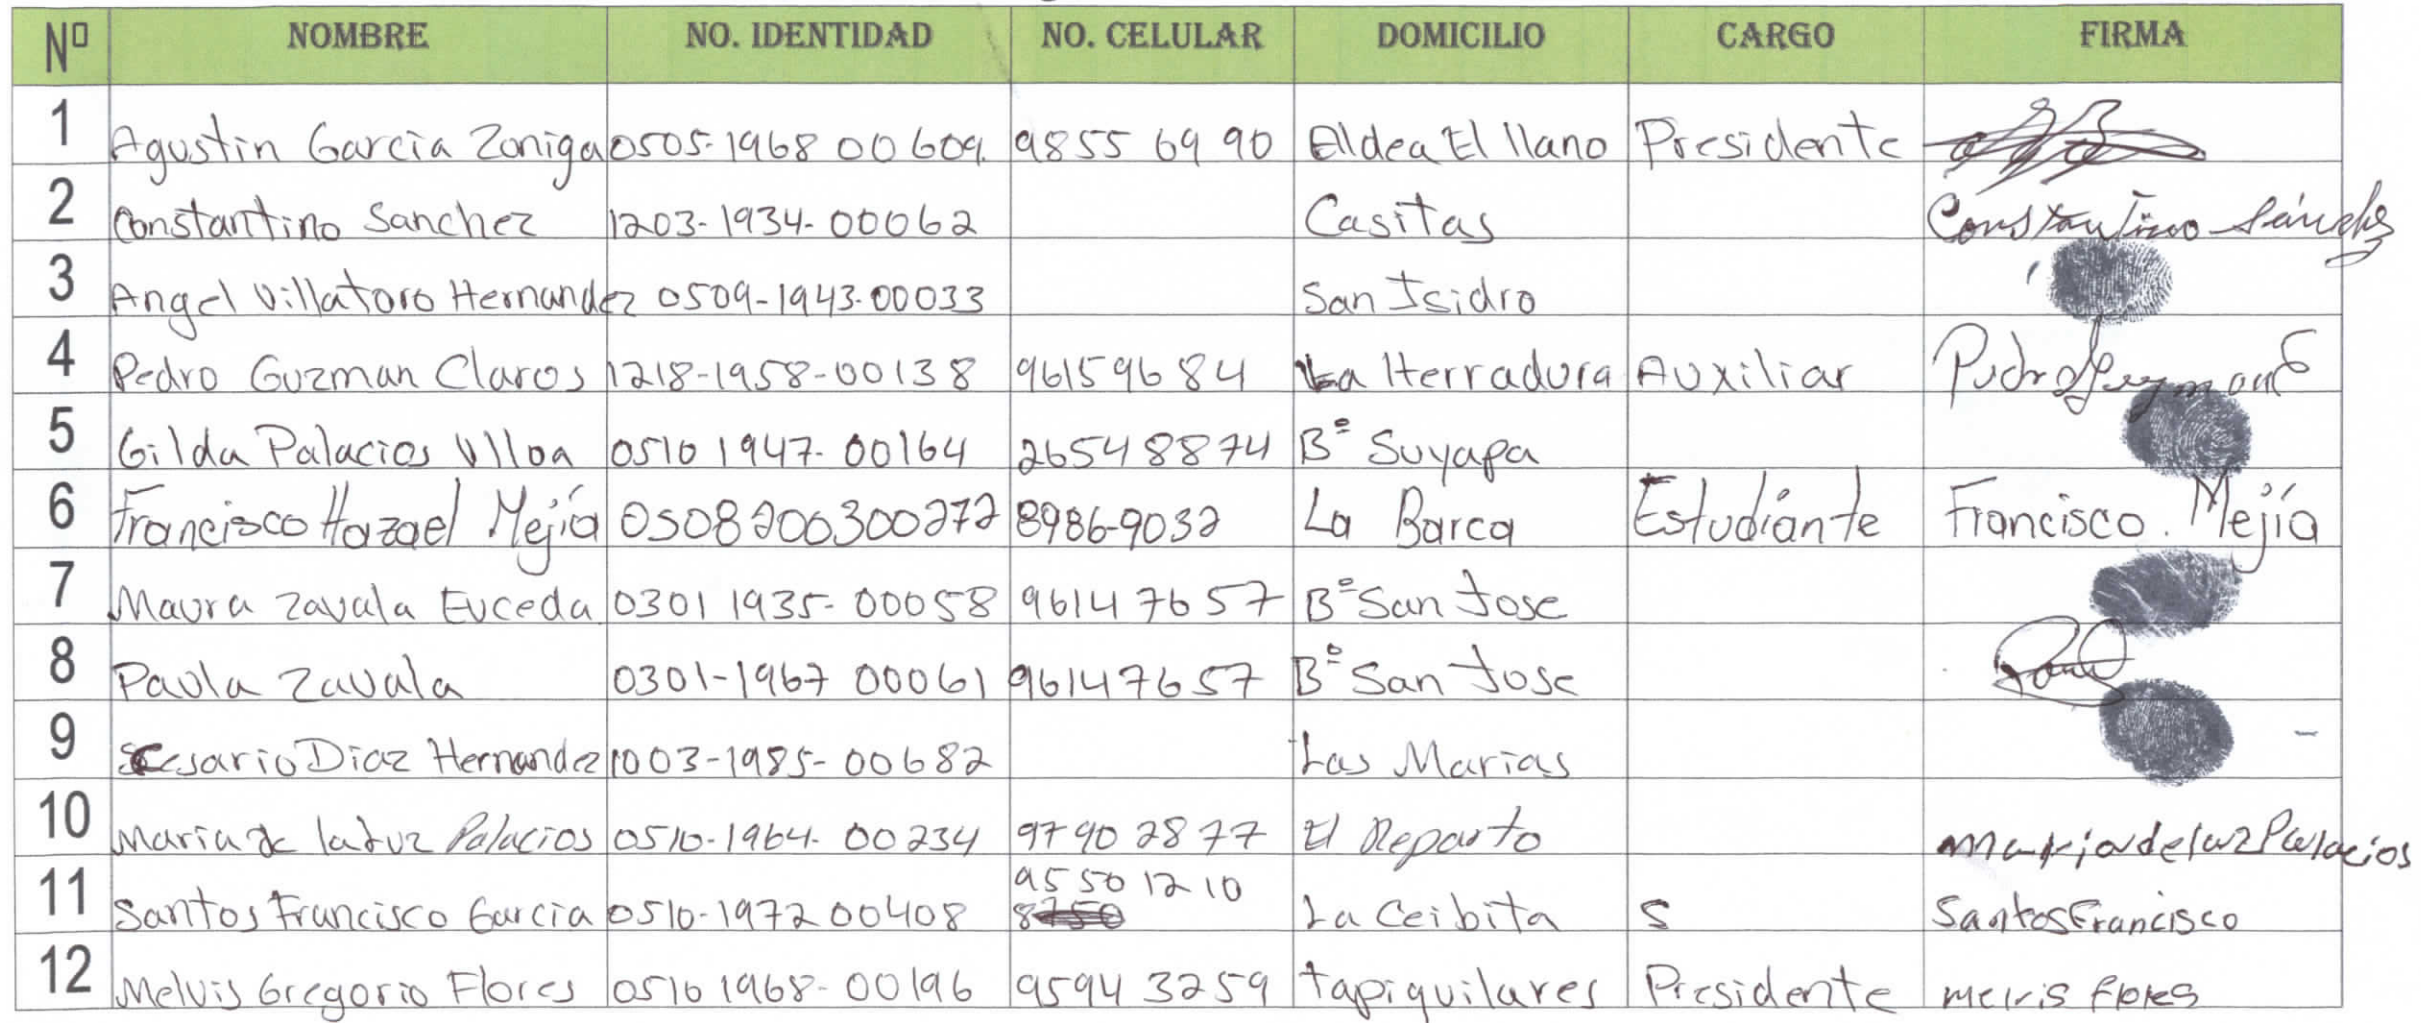 Nº NOMBRE NO. IDENTIDAD NO. CELULAR DOMICILIO CARGO FIRMA
1 Agustin Garcia Zoniga 0505-1968 00609. 9855 69 90 Aldea El llano Presidente
2 Constantino Sanchez 1203-1934-00062 Casitas Constantino Sánchez
3 Angel Villatoro Hernandez 0509-1943-00033 San Isidro
4 Pedro Guzman Claros 1218-1958-00138 96159684 La Herradura Auxiliar Pedro Guzman C
5 Gilda Palacios Ulloa 0510 1947-00164 26548874 Bº Suyapa
6 Francisco Hazael Mejía 0508200300272 8986-9032 La Barca Estudiante Francisco. Mejía
7 Maura Zavala Euceda 0301 1935-00058 96147657 Bº San Jose
8 Paula Zavala 0301-1967 00061 96147657 Bº San Jose
9 Cesario Diaz Hernandez 1003-1985-00682 Las Marias
10 Maria de la Luz Palacios 0510-1964-00234 9790 2877 El Reparto maria de la luz Palacios
11 Santos Francisco Garcia 0510-1972 00408 9550 12 10 La Ceibita S Santos Francisco
12 Melvis Gregorio Flores 0510 1968-00196 9594 3259 Tapiquilares Presidente melvis flores